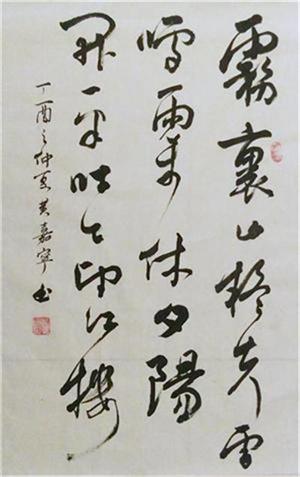 霧裏山疑失雷
鳴雨未休夕陽
開一半吐出望江樓
丁酉之仲夏黄嘉寧书